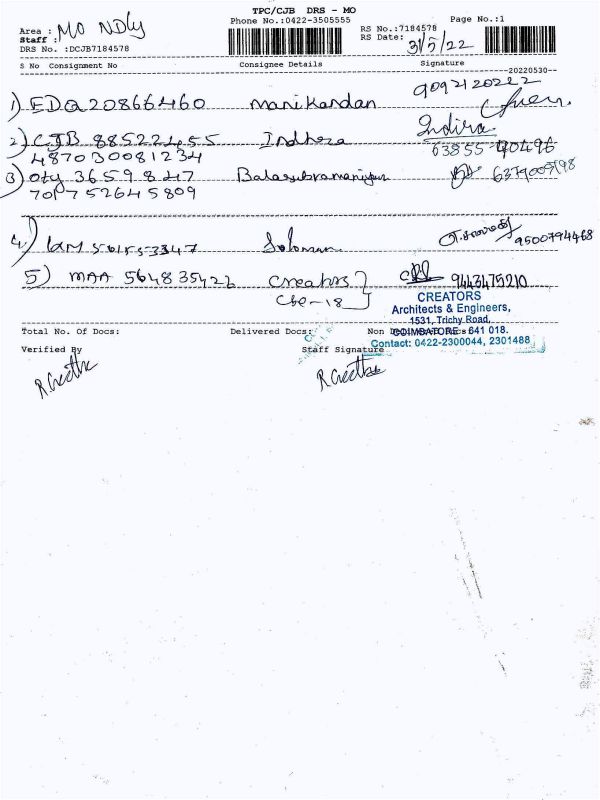 TPC/CJB DRS - MO
Phone No.:0422-3505555 Page No.:1
Area : MO NDly
Staff : RS No.:7184578
DRS No. :DCJB7184578 RS Date: 31/5/22
S No Consignment No Consignee Details Signature
--20220530--
9092120222
1) EDQ20866460 manikandan
2) CJB 885224455 Indhera Indira
487030081234 63855 90496
3) Oty 36598247 Balasubramaniyan
701752645809
4) Soloman 9500794468
5) MAA 564835422 Creators 9443475210
Cbe-18
CREATORS
Architects & Engineers,
1531, Trichy Road,
COIMBATORE - 641 018.
Contact: 0422-2300044, 2301488
Total No. Of Docs: Delivered Docs: Non
Verified By Staff Signature